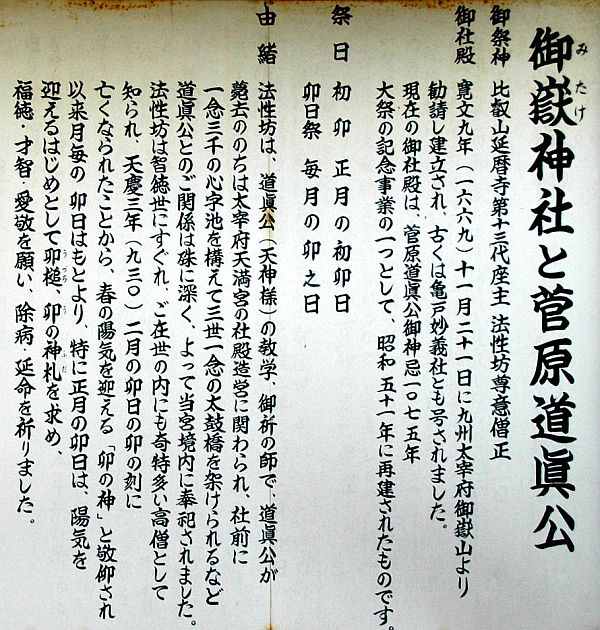 御嶽神社と菅原道眞公
みたけ
御祭神 比叡山延暦寺第十三代座主 法性坊尊意僧正
御社殿 寛文九年（一六六九）十一月二十一日に九州太宰府御嶽山より
勧請し建立され、古くは亀戸妙義社とも号されました。
現在の御社殿は、菅原道眞公御神忌一〇七五年
大祭の記念事業の一つとして、昭和五十一年に再建されたものです。
祭日 初卯 正月の初卯日
卯日祭 毎月の卯之日
由緒 法性坊は、道眞公（天神様）の教学、御祈の師で、道眞公が
薨去ののちは太宰府天満宮の社殿造営に関わられ、社前に
一念三千の心字池を構えて三世一念の太鼓橋を架けられるなど
道眞公とのご関係は殊に深く、よって当宮境内に奉祀されました。
法性坊は智徳世にすぐれ、ご在世の内にも奇特多い高僧として
知られ、天慶三年（九三〇）二月の卯日の卯の刻に
亡くなられたことから、春の陽気を迎える「卯の神」と敬仰され
以来月毎の卯日はもとより、特に正月の卯日は、陽気を
迎えるはじめとして卯槌、卯の神札を求め、
うづち う ふだ
福徳・才智・愛敬を願い、除病・延命を祈りました。